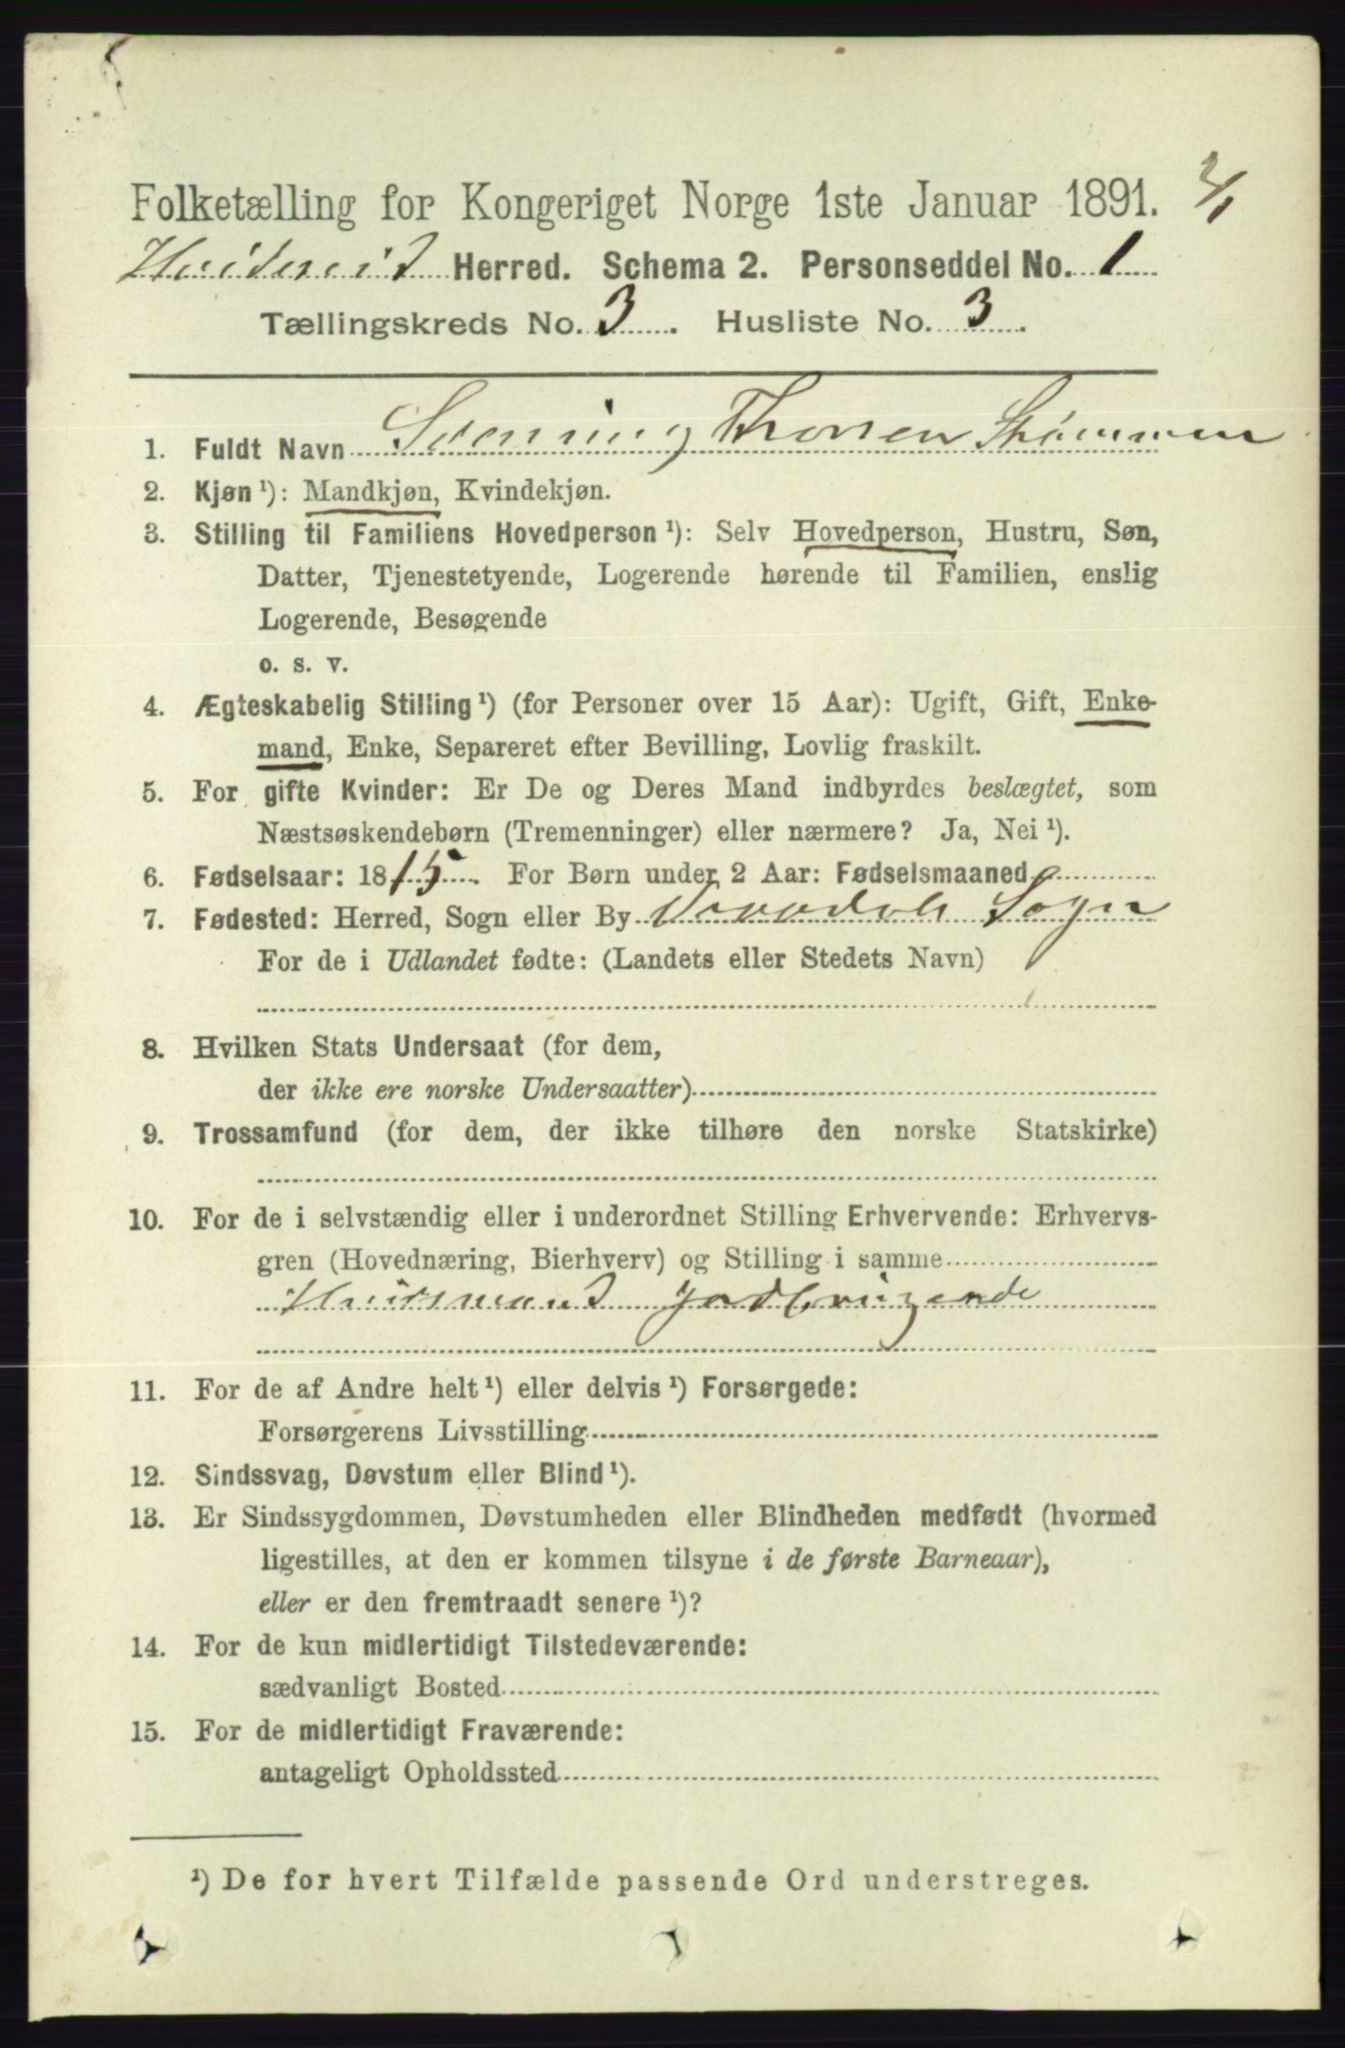 Folketælling for Kongeriget Norge 1ste Januar 1891. 3/1
Hvideseid Herred. Schema 2. Personseddel No. 1
Tællingskreds No. 3. Husliste No. 3.
1. Fuldt Navn Svenning Thorsen Strømmen
2. Kjøn ¹): Mandkjøn, Kvindekjøn.
3. Stilling til Familiens Hovedperson ¹): Selv Hovedperson, Hustru, Søn,
Datter, Tjenestetyende, Logerende hørende til Familien, enslig
Logerende, Besøgende
o. s. v.
4. Ægteskabelig Stilling ¹) (for Personer over 15 Aar): Ugift, Gift, Enke-
mand, Enke, Separeret efter Bevilling, Lovlig fraskilt.
5. For gifte Kvinder: Er De og Deres Mand indbyrdes beslægtet, som
Næstsøskendebørn (Tremenninger) eller nærmere? Ja, Nei ¹).
6. Fødselsaar: 1815. For Børn under 2 Aar: Fødselsmaaned
7. Fødested: Herred, Sogn eller By Vraadals Sogn
For de i Udlandet fødte: (Landets eller Stedets Navn)
8. Hvilken Stats Undersaat (for dem,
der ikke ere norske Undersaatter)
9. Trossamfund (for dem, der ikke tilhøre den norske Statskirke)
10. For de i selvstændig eller i underordnet Stilling Erhvervende: Erhvervs-
gren (Hovednæring, Bierhverv) og Stilling i samme
Huusmand Jordbrugende
11. For de af Andre helt ¹) eller delvis ¹) Forsørgede:
Forsørgerens Livsstilling
12. Sindssvag, Døvstum eller Blind ¹).
13. Er Sindssygdommen, Døvstumheden eller Blindheden medfødt (hvormed
ligestilles, at den er kommen tilsyne i de første Barneaar),
eller er den fremtraadt senere ¹)?
14. For de kun midlertidigt Tilstedeværende:
sædvanligt Bosted
15. For de midlertidigt Fraværende:
antageligt Opholdssted
¹) De for hvert Tilfælde passende Ord understreges.